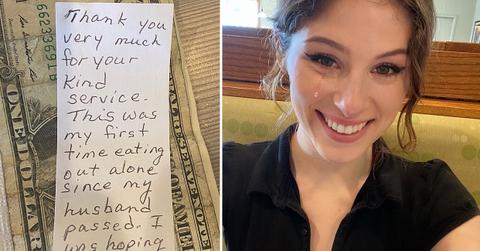 Thank you
very much
for your
kind
service.
This was
my first
time eating
out alone
since my
husband
passed. I
was hoping
66239365
ONE DOLLAR